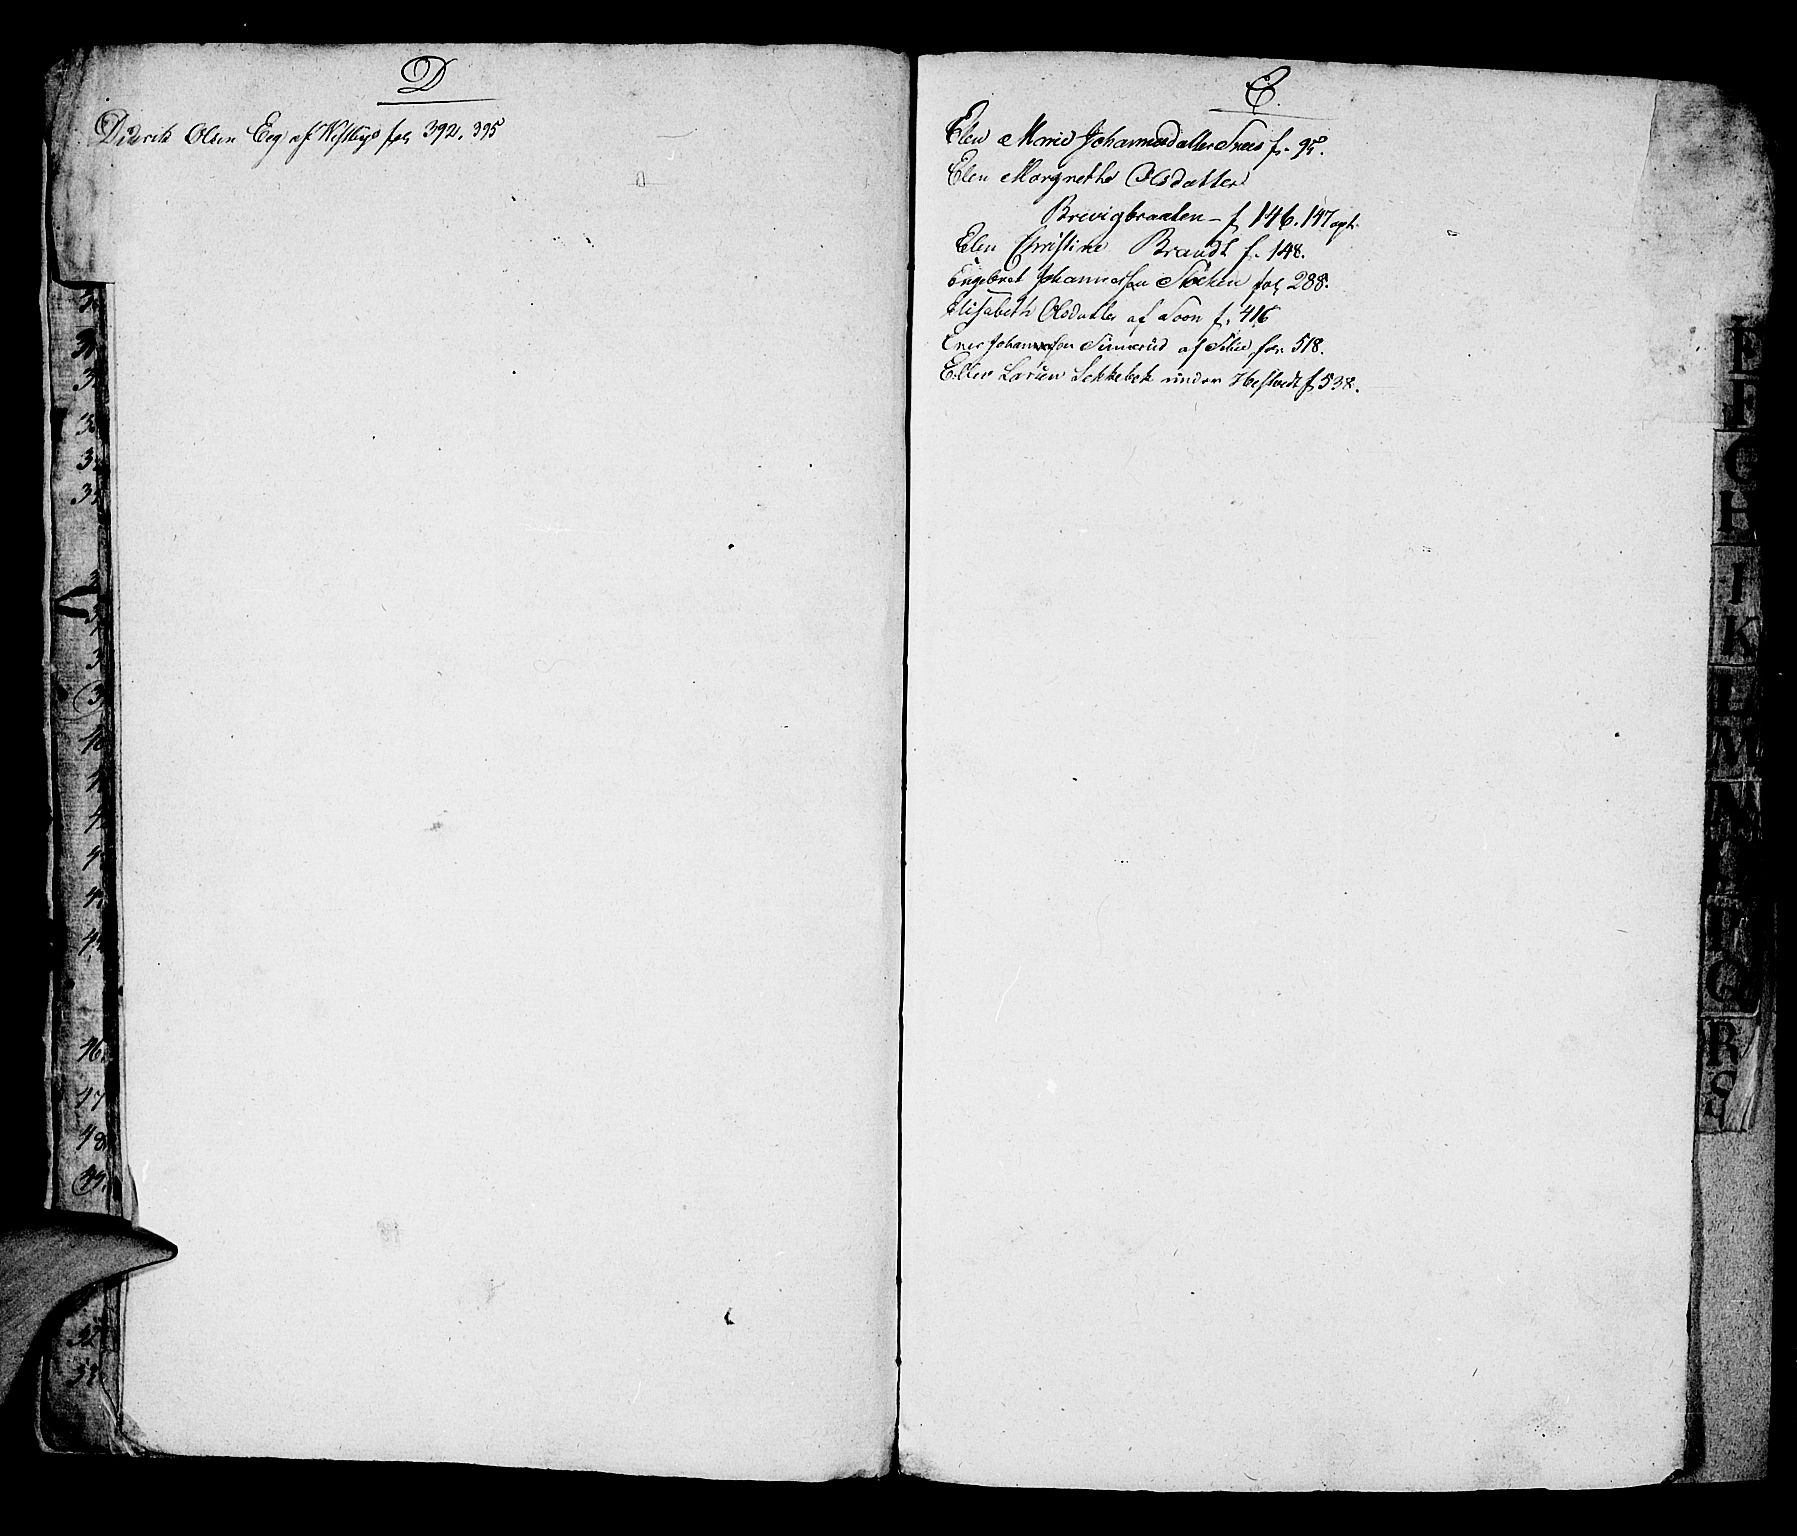 D
Diderik Olsen Eeg af Westbye fol 392. 395
E.
Elen Marie Johannesdatter fr. 95.
Elen Margrethe Olsdatter
Brevigbraaten - f 146. 147
Elen Christine Brandt f. 148.
Engebret Johannessen Stöcken fol 288.
Elisabeth Olsdatter af Soon f. 416
Johannessen af fol 518.
Larsen Lekkebek under f 538.
46.
47
48
E
F
G
H
I
K
L
M
N
Q
R
S